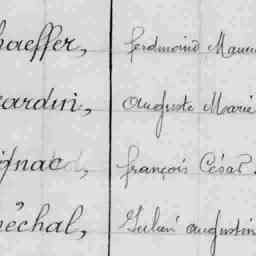 haeffer, ferdinand Mauri
ardin, Auguste Marie
ignac, françois César
échal, Julien augustin